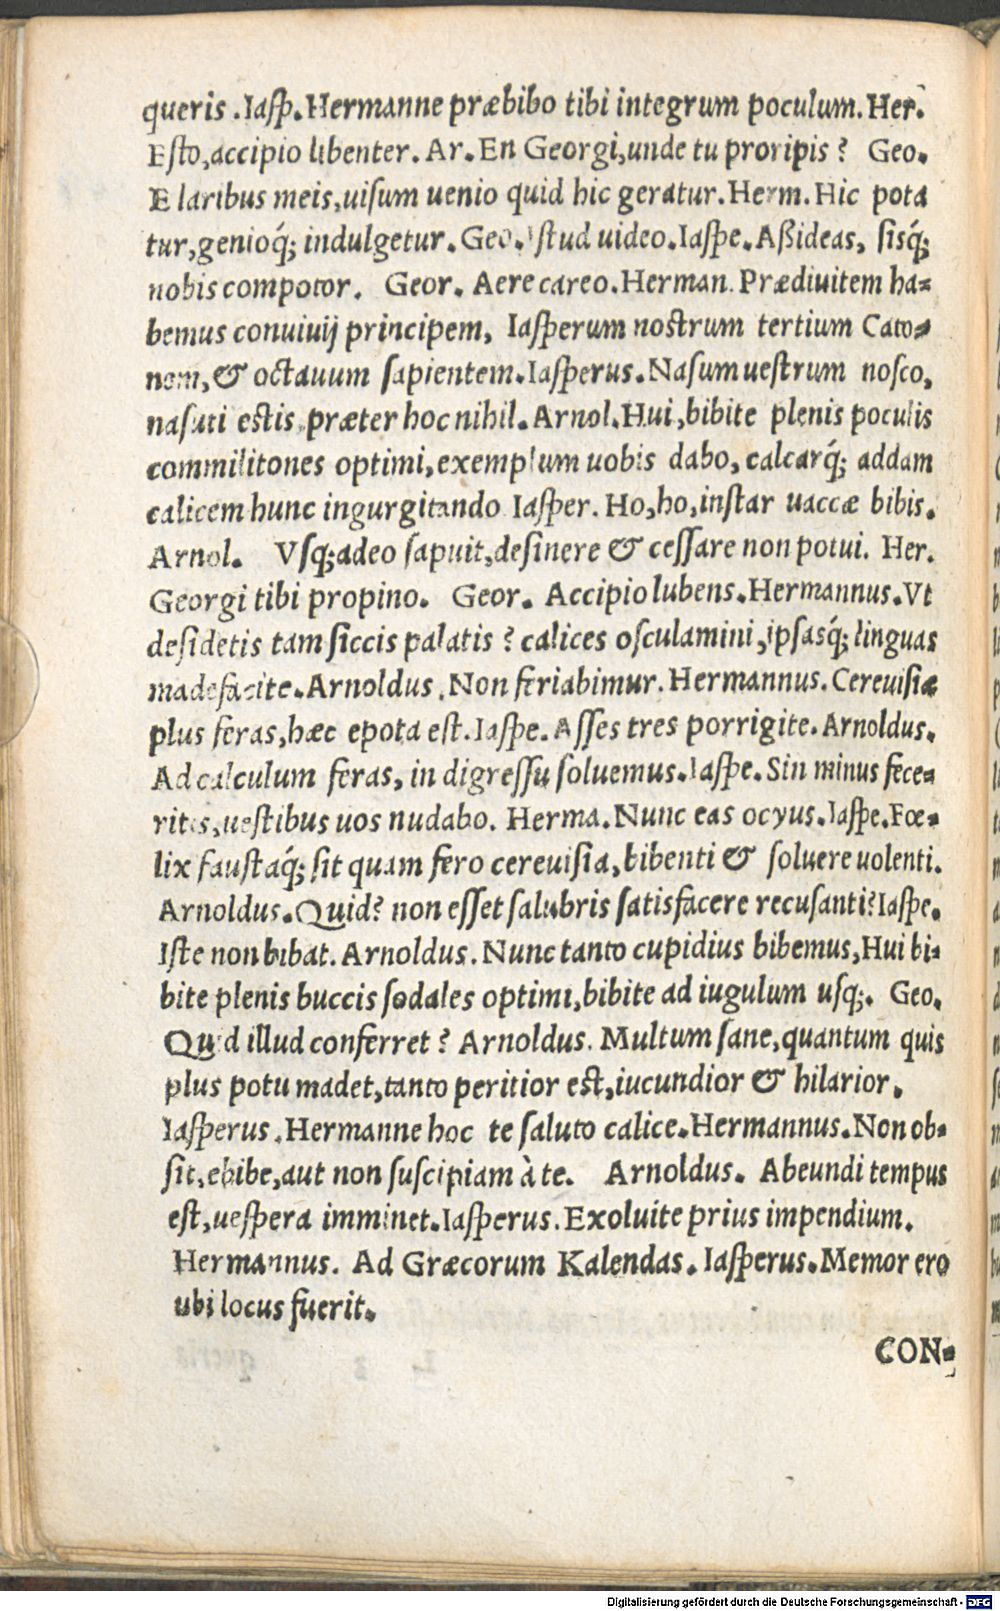 queris .Iaſp. Hermanne præbibo tibi integrum poculum. Her.
Eſto, accipio libenter. Ar. En Georgi, unde tu proripis ? Geo.
E laribus meis, uiſum uenio quid hic geratur. Herm. Hic pota
tur, genioq́; indulgetur. Geo. Iſtud uideo. Iaſpe. Aßideas, ſisq́;
nobis compotor. Geor. Aere careo. Herman. Prædiuitem ha-
bemus conuiuij principem, Iaſperum noſtrum tertium Cato-
nem, & octauum ſapientem. Iaſperus. Naſum ueſtrum noſco,
naſuti eſtis præter hoc nihil. Arnol. Hui, bibite plenis poculis
commilitones optimi, exemplum uobis dabo, calcarq́; addam
calicem hunc ingurgitando Iaſper. Ho, ho, inſtar uaccæ bibis.
Arnol. Vſq; adeo ſapuit, deſinere & ceſſare non potui. Her.
Georgi tibi propino. Geor. Accipio lubens. Hermannus. Vt
deſidetis tam ſiccis palatis ? calices oſculamini, ipſasq́; linguas
madefacite. Arnoldus. Non feriabimur. Hermannus. Cereuiſiæ
plus feras, hæc epota eſt. Iaſpe. Aſſes tres porrigite. Arnoldus.
Ad calculum feras, in digreſſu ſoluemus. Iaſpe. Sin minus fece-
ritis, ueſtibus uos nudabo. Herma. Nunc eas ocyus. Iaſpe. Fœ-
lix fauſtaq́; ſit quam fero cereuiſia, bibenti & ſoluere uolenti.
Arnoldus. Quid? non eſſet ſalubris ſatisfacere recuſanti? Iaſpe.
Iſte non bibat. Arnoldus. Nunc tanto cupidius bibemus, Hui bi-
bite plenis buccis ſodales optimi, bibite ad iugulum uſq;. Geo.
Quid illud conferret ? Arnoldus. Multum ſane, quantum quis
plus potu madet, tanto peritior eſt, iucundior & hilarior.
Iaſperus. Hermanne hoc te ſaluto calice. Hermannus. Non ob-
ſit, ebibe, aut non ſuſcipiam à te. Arnoldus. Abeundi tempus
eſt, ueſpera imminet. Iaſperus. Exoluite prius impendium.
Hermannus. Ad Græcorum Kalendas. Iaſperus. Memor ero
ubi locus fuerit.
CON-
Digitalisierung gefördert durch die Deutsche Forschungsgemeinschaft - DFG